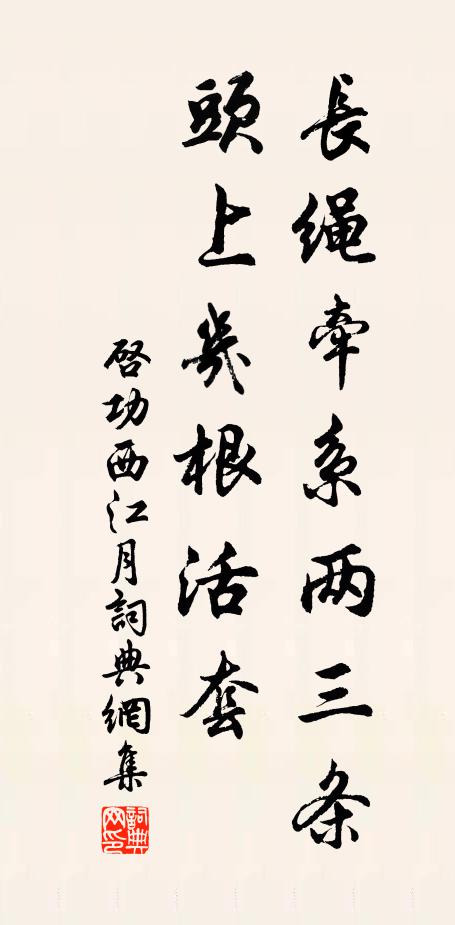 長繩牽系两三条
頭上幾根活套
啓功西江月詞典網集
詞典网印